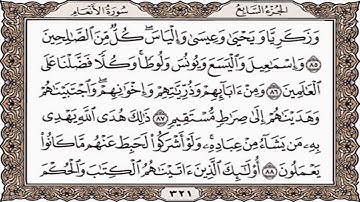 الجزء السابع سورة الأنعام
وَزَكَرِيَّا وَيَحْيَىٰ وَعِيسَىٰ وَإِلْيَاسَ ۖ كُلٌّ مِّنَ ٱلصَّٰلِحِينَ
٨٥ وَإِسْمَٰعِيلَ وَٱلْيَسَعَ وَيُونُسَ وَلُوطًا ۚ وَكُلًّا فَضَّلْنَا عَلَى
ٱلْعَٰلَمِينَ ٨٦ وَمِنْ ءَابَآئِهِمْ وَذُرِّيَّٰتِهِمْ وَإِخْوَٰنِهِمْ ۖ وَٱجْتَبَيْنَٰهُمْ
وَهَدَيْنَٰهُمْ إِلَىٰ صِرَٰطٍ مُّسْتَقِيمٍ ٨٧ ذَٰلِكَ هُدَى ٱللَّهِ يَهْدِى
بِهِۦ مَن يَشَآءُ مِنْ عِبَادِهِۦ ۚ وَلَوْ أَشْرَكُوا۟ لَحَبِطَ عَنْهُم مَّا كَانُوا۟
يَعْمَلُونَ ٨٨ أُو۟لَٰٓئِكَ ٱلَّذِينَ ءَاتَيْنَٰهُمُ ٱلْكِتَٰبَ وَٱلْحُكْمَ
٣٢١